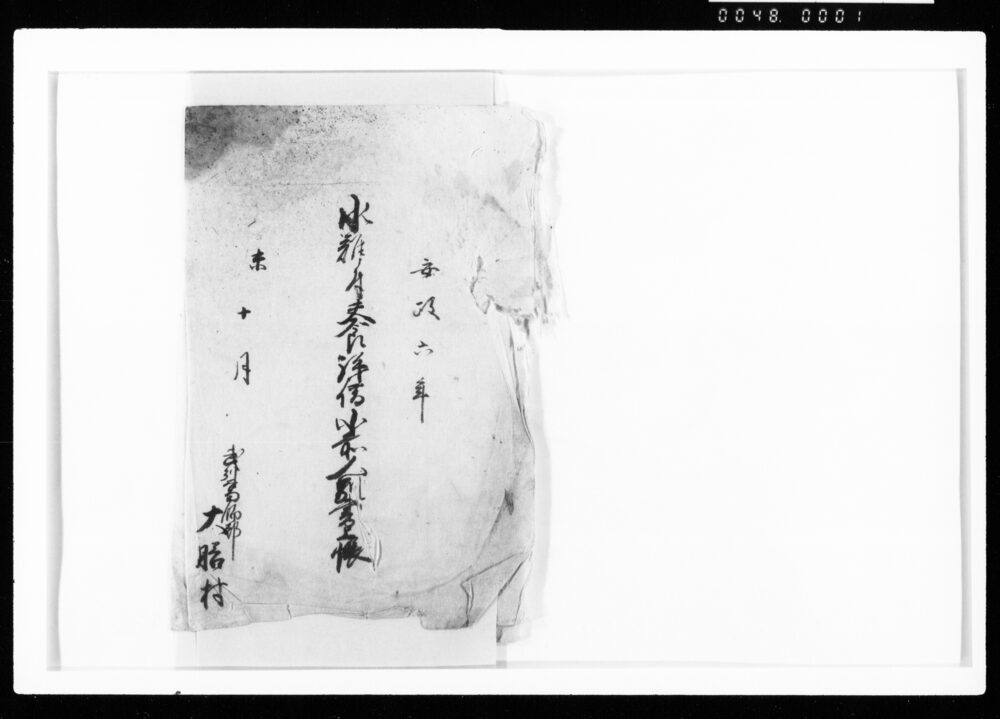 0048. 0001
安政六年
水難夫食拝借小前割賦書上帳
未十月
武州葛飾郡
大膳村